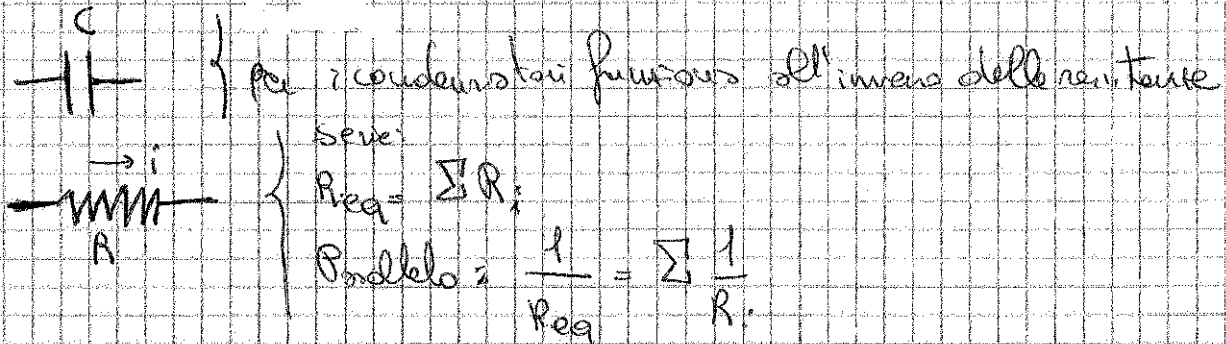 C
per i condensatori funziona all'inverso delle resistenze
→ i
R
Serie:
Req = Σ Ri
Parallelo: 1/Req = Σ 1/Ri